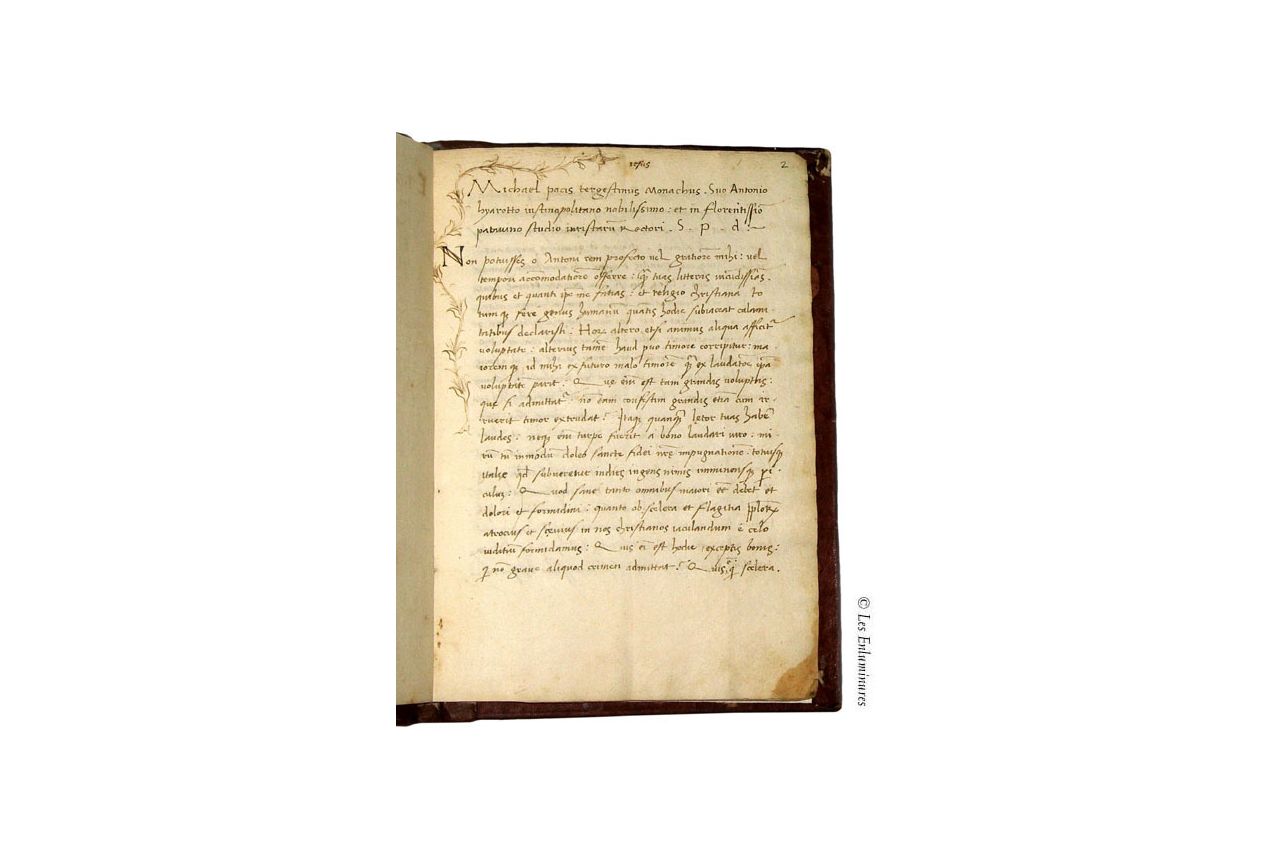 iesus 2
Michael pacis tergestinus Monachus. Suo Antonio
hyarotto iustinopolitano nobilissimo: et in florentissīō
patavino studio iuristarū Rectori. S. P. d.
Non potuisses o Antoni rem profecto vel gratiorē mihi: vel
tempori accōmodatiorē offerre: tuas litteris
quibus et quanti ipē me facias: et religio christiana to
tumqȝ fere genus humanū quātis hodie subiaceat calami
tatibus declarasti: Horȝ altero etsi animus aliqua afficitᵉ
voluptate: alterius tamē haud puo timore corripitur: ma
ioremqȝ id mihi ex futuro malo timorē qᷓ ex laudatōe ipā
voluptatē parit: Que eīm est tam grandis voluptas:
que si admittatᵉ: nō eam confestim grandis etiā cum ir
ruerit timor extrudat? Itaqȝ quanqᷓ letor tuas habē
laudes: neqȝ eīm turpe fuerit a bono laudari viro: mi
rū tn̄ inmodū doleo sancte fidei nrē impugnationē: totiusqȝ
italie qd̄ subveretur indies ingens nimis imminensqȝ ꝑi
culuȝ: Quod sane tanto omnibus maiori eē debet et
dolori et formidini: quanto ob scelera et flagitia
atrocius et sevius in nos christianos iaculandum ē celo
iuditiū formidamus: Quis eī est hodie exceptis bonis:
qͥ nō grave aliquod crimen admittat? Quis qͥ scelera.
© Les Enluminures